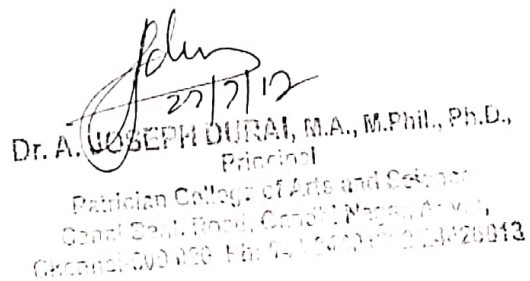 27/7/17
Dr. A. JOSEPH DURAI, M.A., M.Phil., Ph.D.,
Principal
Patrician College of Arts and Science
Canal Bank Road, Gandhi Nagar, Adyar,
Chennai-600 020